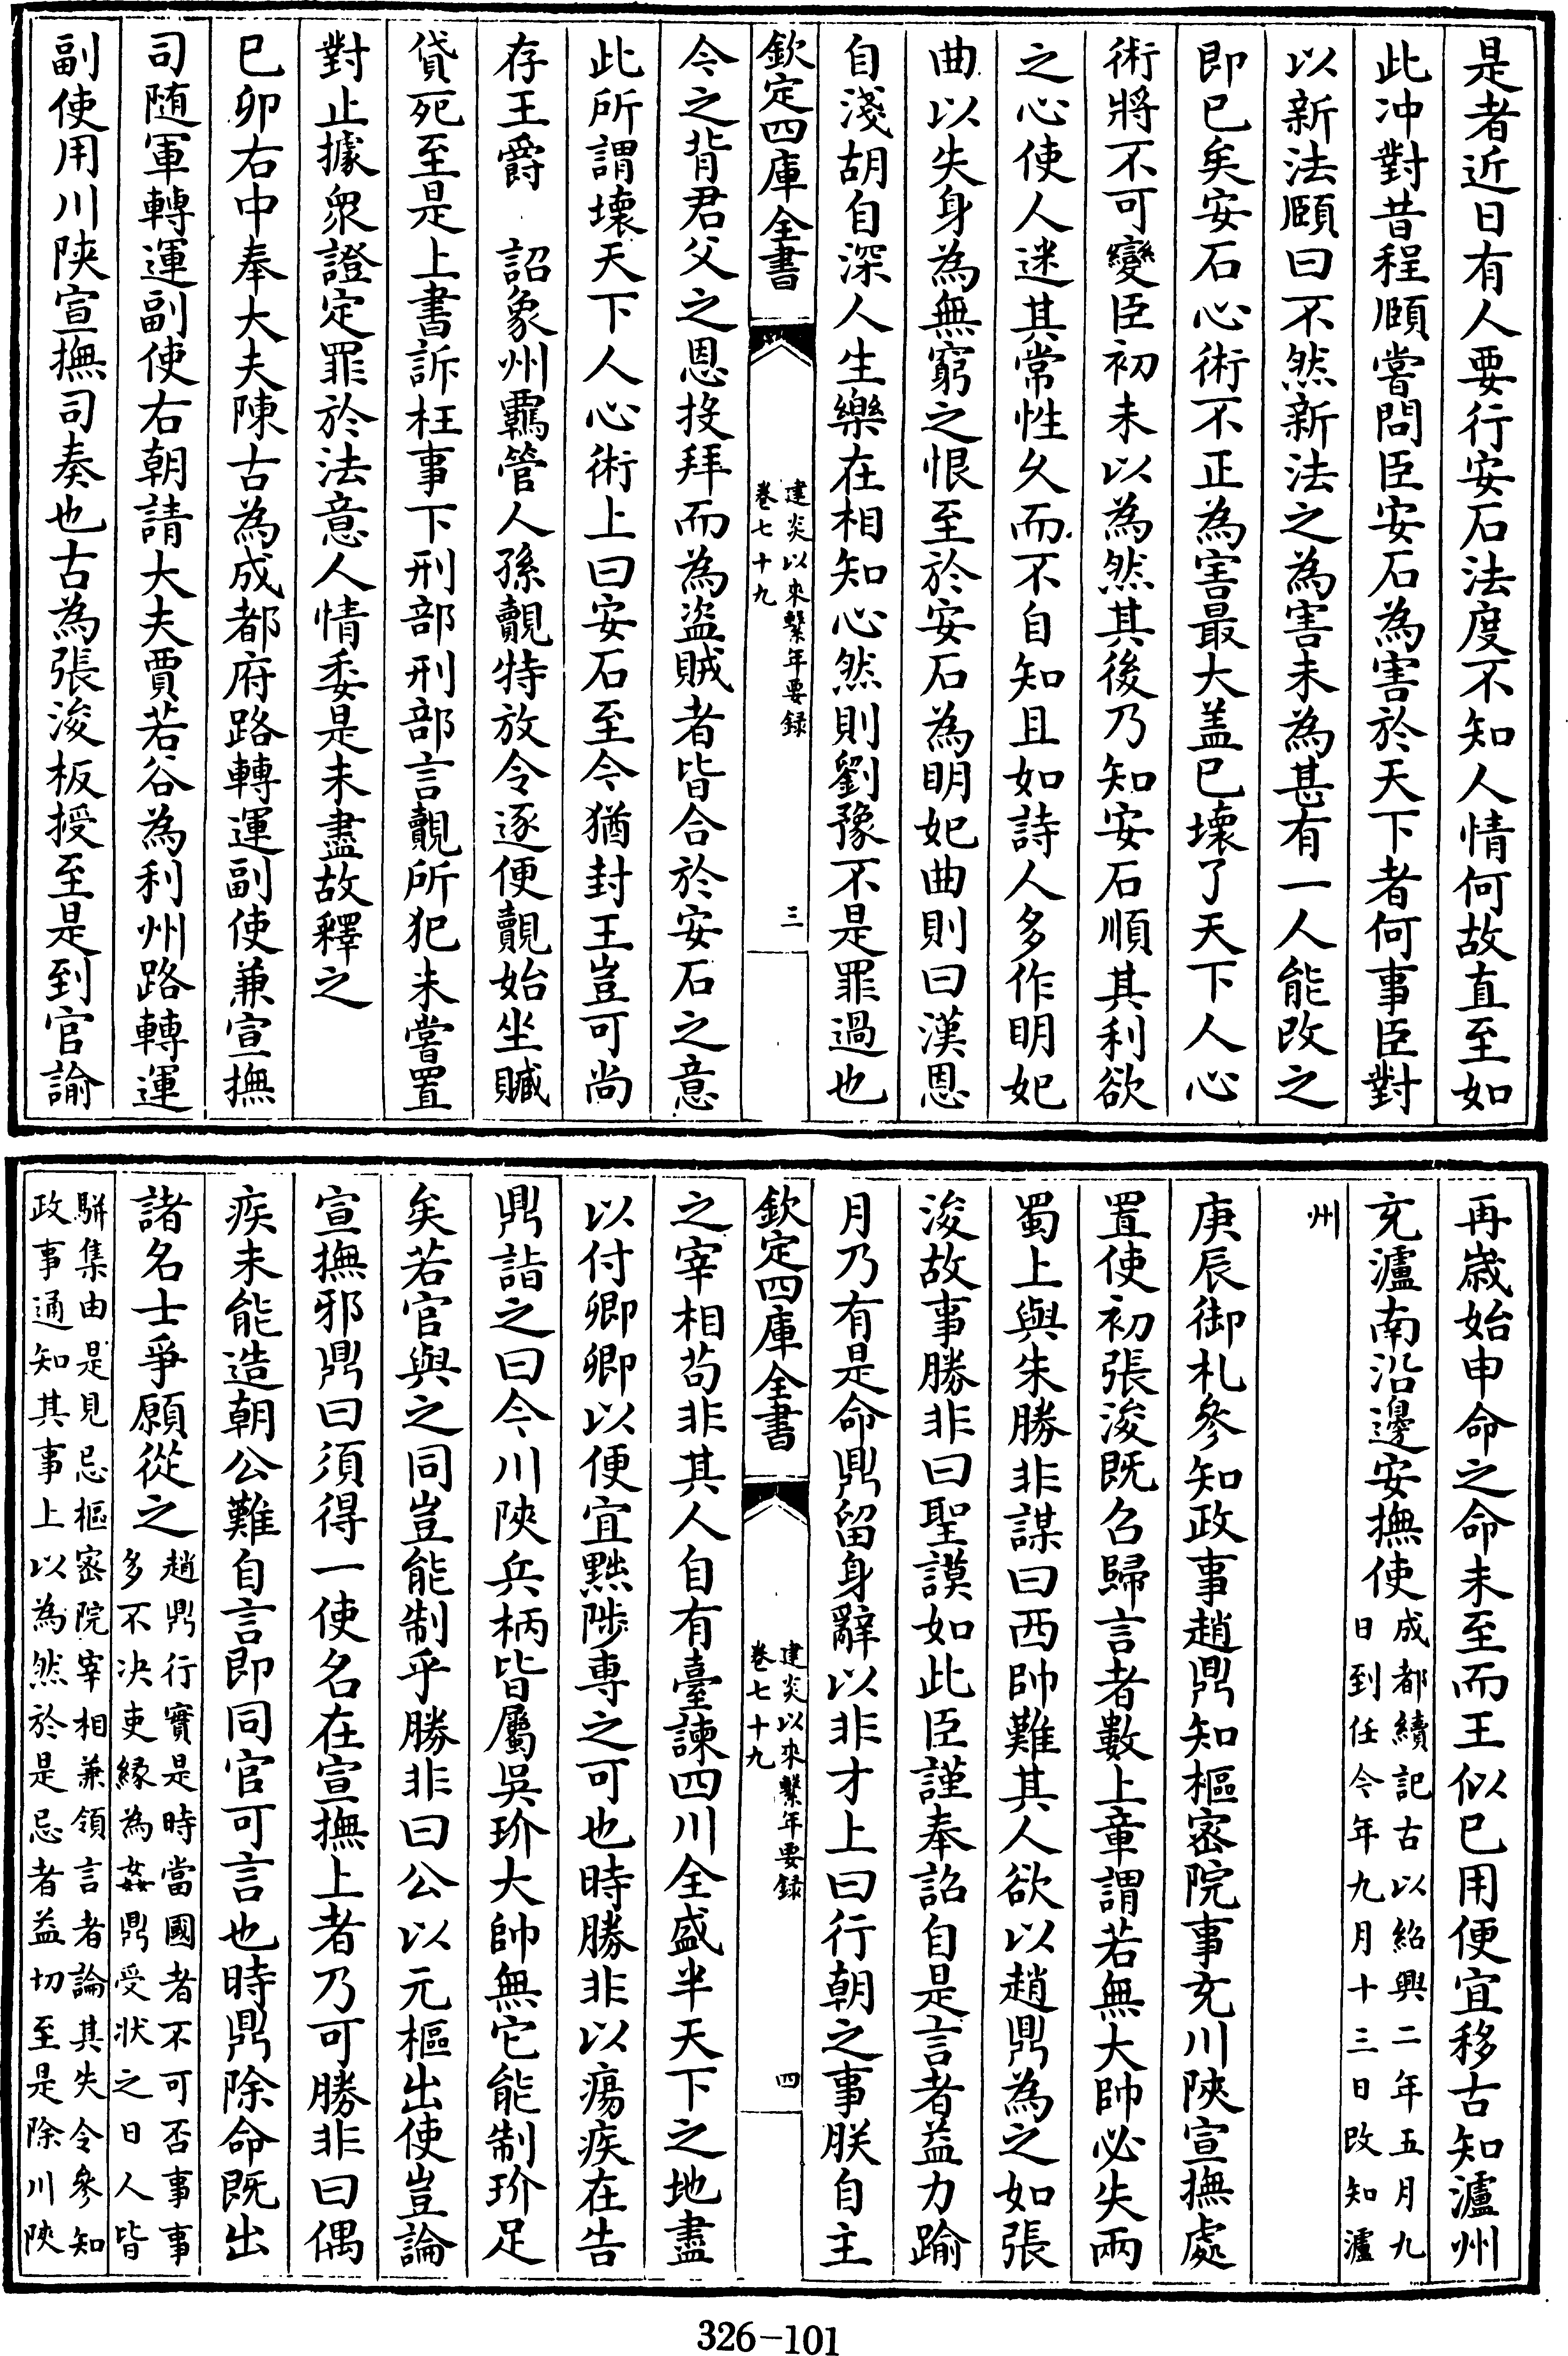 是者近日有人要行安石法度不知人情何故直至如
此冲對昔程頤嘗問臣安石為害於天下者何事臣對
以新法頤曰不然新法之為害未為甚有一人能改之
即已矣安石心術不正為害最大盖已壞了天下人心
術將不可變臣初未以為然其後乃知安石順其利欲
之心使人迷其常性久而不自知且如詩人多作明妃
曲以失身為無窮之恨至於安石為明妃曲則曰漢恩
自淺胡自深人生樂在相知心然則劉豫不是罪過也
欽定四庫全書
建炎以來繫年要録
卷七十九
三
今之背君父之恩投拜而為盜賊者皆合於安石之意
此所謂壞天下人心術上曰安石至今猶封王豈可尚
存王爵　詔象州羈管人孫覿特放令逐便覿始坐贓
貸死至是上書訴枉事下刑部刑部言覿所犯未嘗置
對止據衆證定罪於法意人情委是未盡故釋之
已卯右中奉大夫陳古為成都府路轉運副使兼宣撫
司随軍轉運副使右朝請大夫賈若谷為利州路轉運
副使用川陝宣撫司奏也古為張浚板授至是到官諭
再歲始申命之命未至而王似已用便宜移古知瀘州
充瀘南沿邊安撫使
成都續記古以紹興二年五月九
日到任今年九月十三日改知瀘
州
庚辰御札參知政事趙鼎知樞密院事充川陝宣撫處
置使初張浚既召歸言者數上章謂若無大帥必失兩
蜀上與朱勝非謀曰西帥難其人欲以趙鼎為之如張
浚故事勝非曰聖謨如此臣謹奉詔自是言者益力踰
月乃有是命鼎留身辭以非才上曰行朝之事朕自主
欽定四庫全書
建炎以來繫年要録
卷七十九
四
之宰相苟非其人自有臺諫四川全盛半天下之地盡
以付卿卿以便宜黜陟專之可也時勝非以瘍疾在告
鼎詣之曰今川陝兵柄皆屬吳玠大帥無它能制玠足
矣若官與之同豈能制乎勝非曰公以元樞出使豈論
宣撫邪鼎曰須得一使名在宣撫上者乃可勝非曰偶
疾未能造朝公難自言即同官可言也時鼎除命既出
諸名士爭願從之
趙鼎行實是時當國者不可否事事
多不决吏緣為姦鼎受状之日人皆
駢集由是見忌樞密院宰相兼領言者論其失令參知
政事通知其事上以為然於是忌者益切至是除川陝
326-101